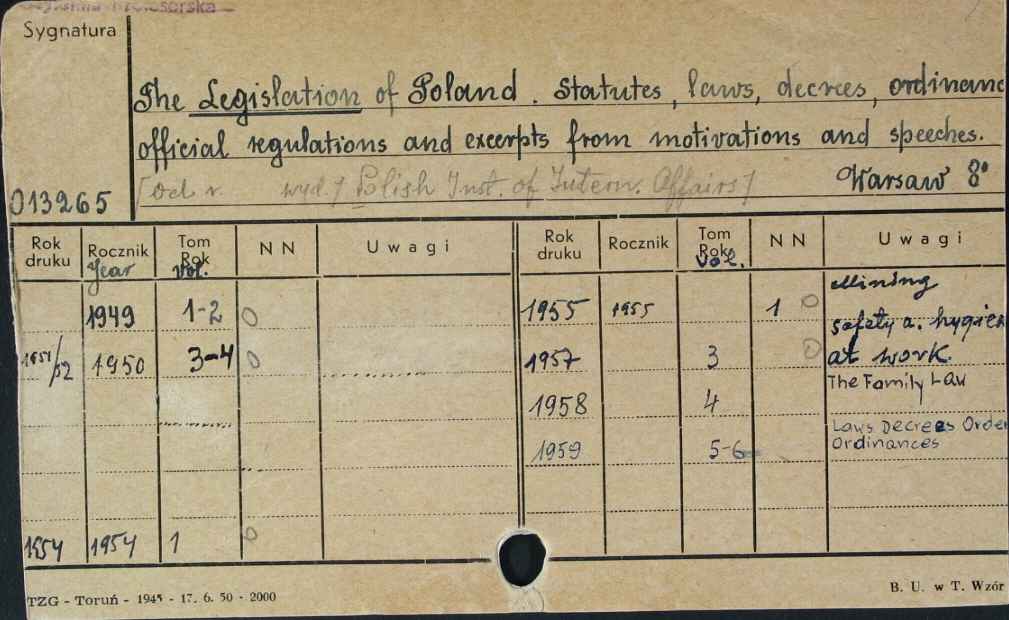 Sygnatura
The Legislation of Poland. Statutes, laws, decrees, ordinanc
official regulations and excerpts from motivations and speeches.
[od r. wyd.] Polish Inst. of Intern. Affairs] Warsaw 8°
013265
Rok druku Rocznik Tom Rok N N Uwagi Rok druku Rocznik Tom Rok N N Uwagi
Year Vol. Vol.
1949 1-2 0 1955 1955 1 0 Mining
safety a. hygien
1951/52 1950 3-4 0 1957 3 0 at work.
The Family Law
1958 4
Laws Decrees Order
1959 5-6 Ordinances
1954 1954 1 0
TZG - Toruń - 1945 - 17. 6. 50 - 2000
B. U. w T. Wzór